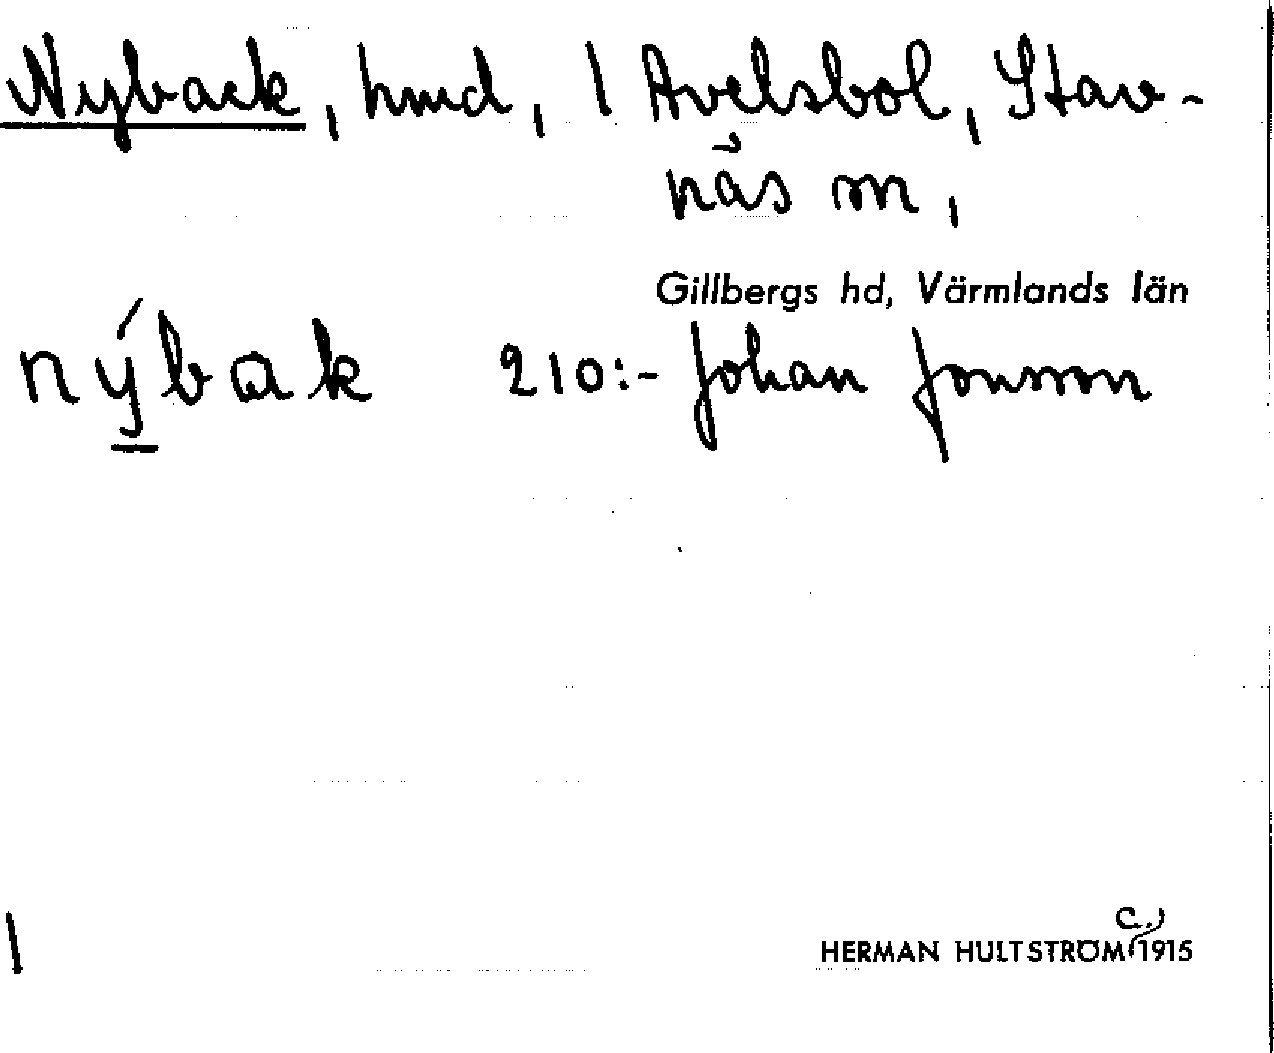 Nyback, hmd, 1 Avelsbol, Stav-
näs sn,
Gillbergs hd, Värmlands län
nýbak 210:- Johan Jonsson
1
HERMAN HULTSTRÖM, c. 1915